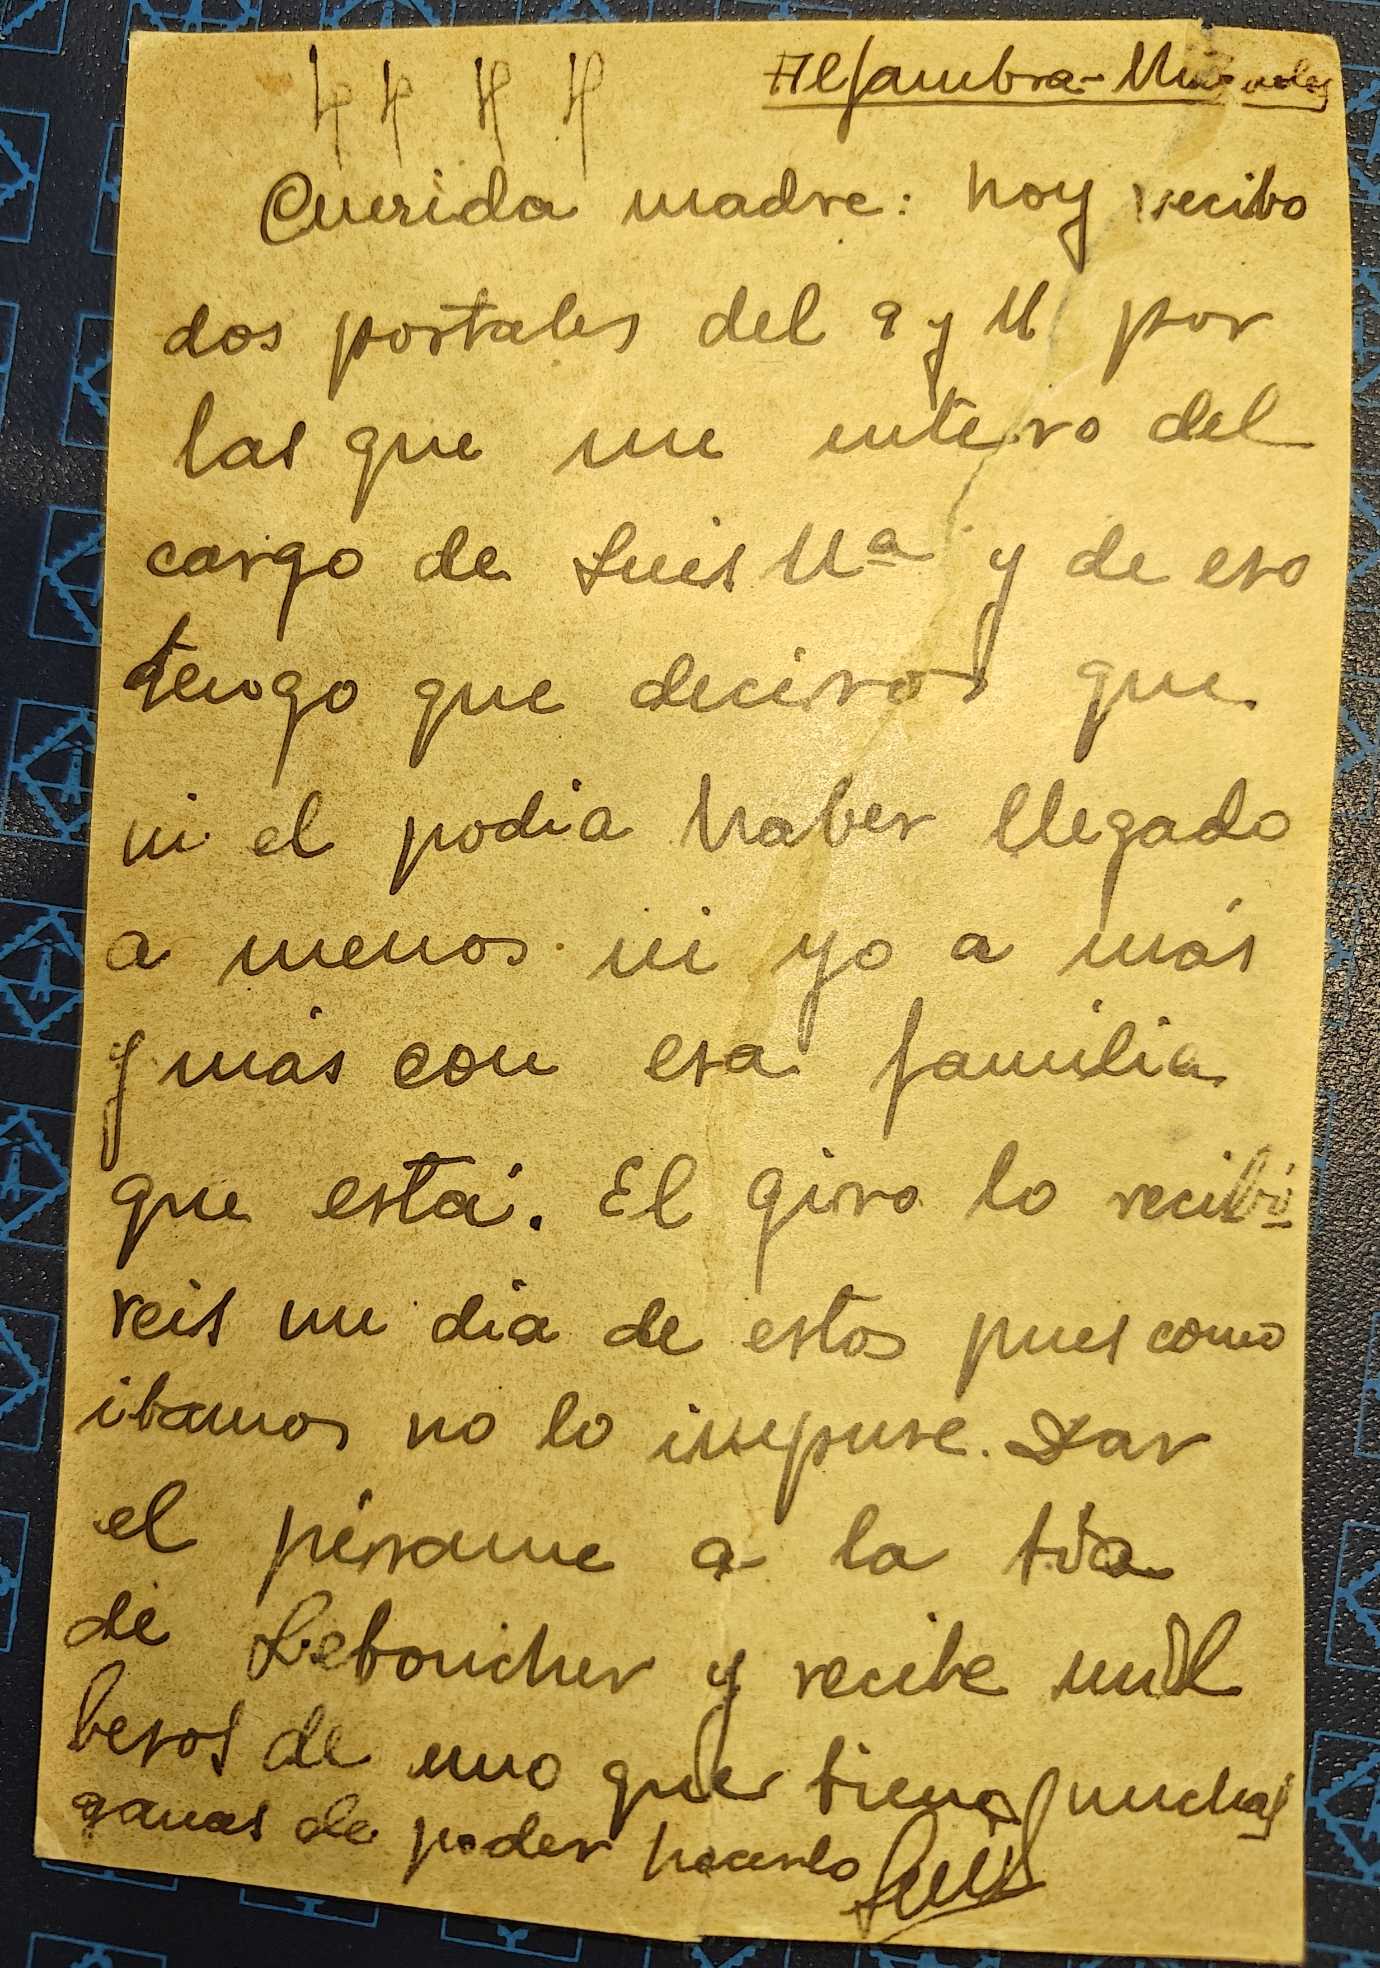 Alfambra-Miercoles
Querida madre: hoy recibo
dos postales del 9 y 11 por
las que me entero del
cargo de Luis Mª y de eso
tengo que deciros que
ni el podia haber llegado
a menos ni yo a más
y más con esa familia
que está. El giro lo recibi-
reis un dia de estos pues como
ibamos no lo impuse. Dar
el pésame a la tia
de Leboucher y recibe mil
besos de uno que tiene muchas
ganas de poder hacerlo Luis